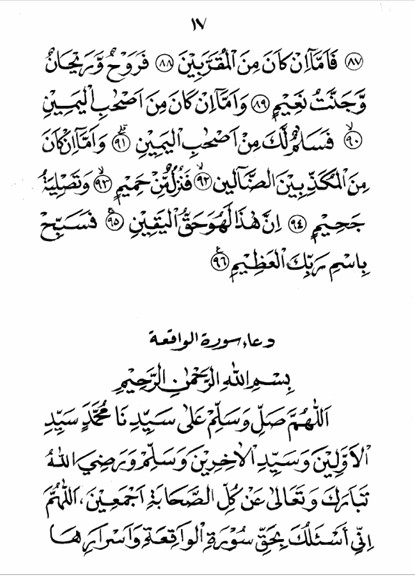 ١٧
٨٧ فَاَمَّآ اِنْ كَانَ مِنَ الْمُقَرَّبِيْنَ ٨٨ فَرَوْحٌ وَّرَيْحَانٌ
وَّجَنَّتُ نَعِيْمٍ ٨٩ وَاَمَّآ اِنْ كَانَ مِنَ اَصْحٰبِ الْيَمِيْنِ
٩٠ فَسَلٰمٌ لَّكَ مِنْ اَصْحٰبِ الْيَمِيْنِ ٩١ وَاَمَّآ اِنْ كَانَ
مِنَ الْمُكَذِّبِيْنَ الضَّآلِّيْنَ ٩٢ فَنُزُلٌ مِّنْ حَمِيْمٍ ٩٣ وَتَصْلِيَةُ
جَحِيْمٍ ٩٤ اِنَّ هٰذَا لَهُوَ حَقُّ الْيَقِيْنِ ٩٥ فَسَبِّحْ
بِاسْمِ رَبِّكَ الْعَظِيْمِ ٩٦
دعاء سورة الواقعة
بِسْمِ اللهِ الرَّحْمٰنِ الرَّحِيْمِ
اَللّٰهُمَّ صَلِّ وَسَلِّمْ عَلٰى سَيِّدِنَا مُحَمَّدٍ سَيِّدِ
الْاَوَّلِيْنَ وَسَيِّدِ الْاٰخِرِيْنَ وَسَلِّمْ وَرَضِيَ اللهُ
تَبَارَكَ وَتَعَالٰى عَنْ كُلِّ الصَّحَابَةِ اَجْمَعِيْنَ، اَللّٰهُمَّ
اِنِّيْ اَسْئَلُكَ بِحَقِّ سُوْرَةِ الْوَاقِعَةِ وَاَسْرَارِهَا